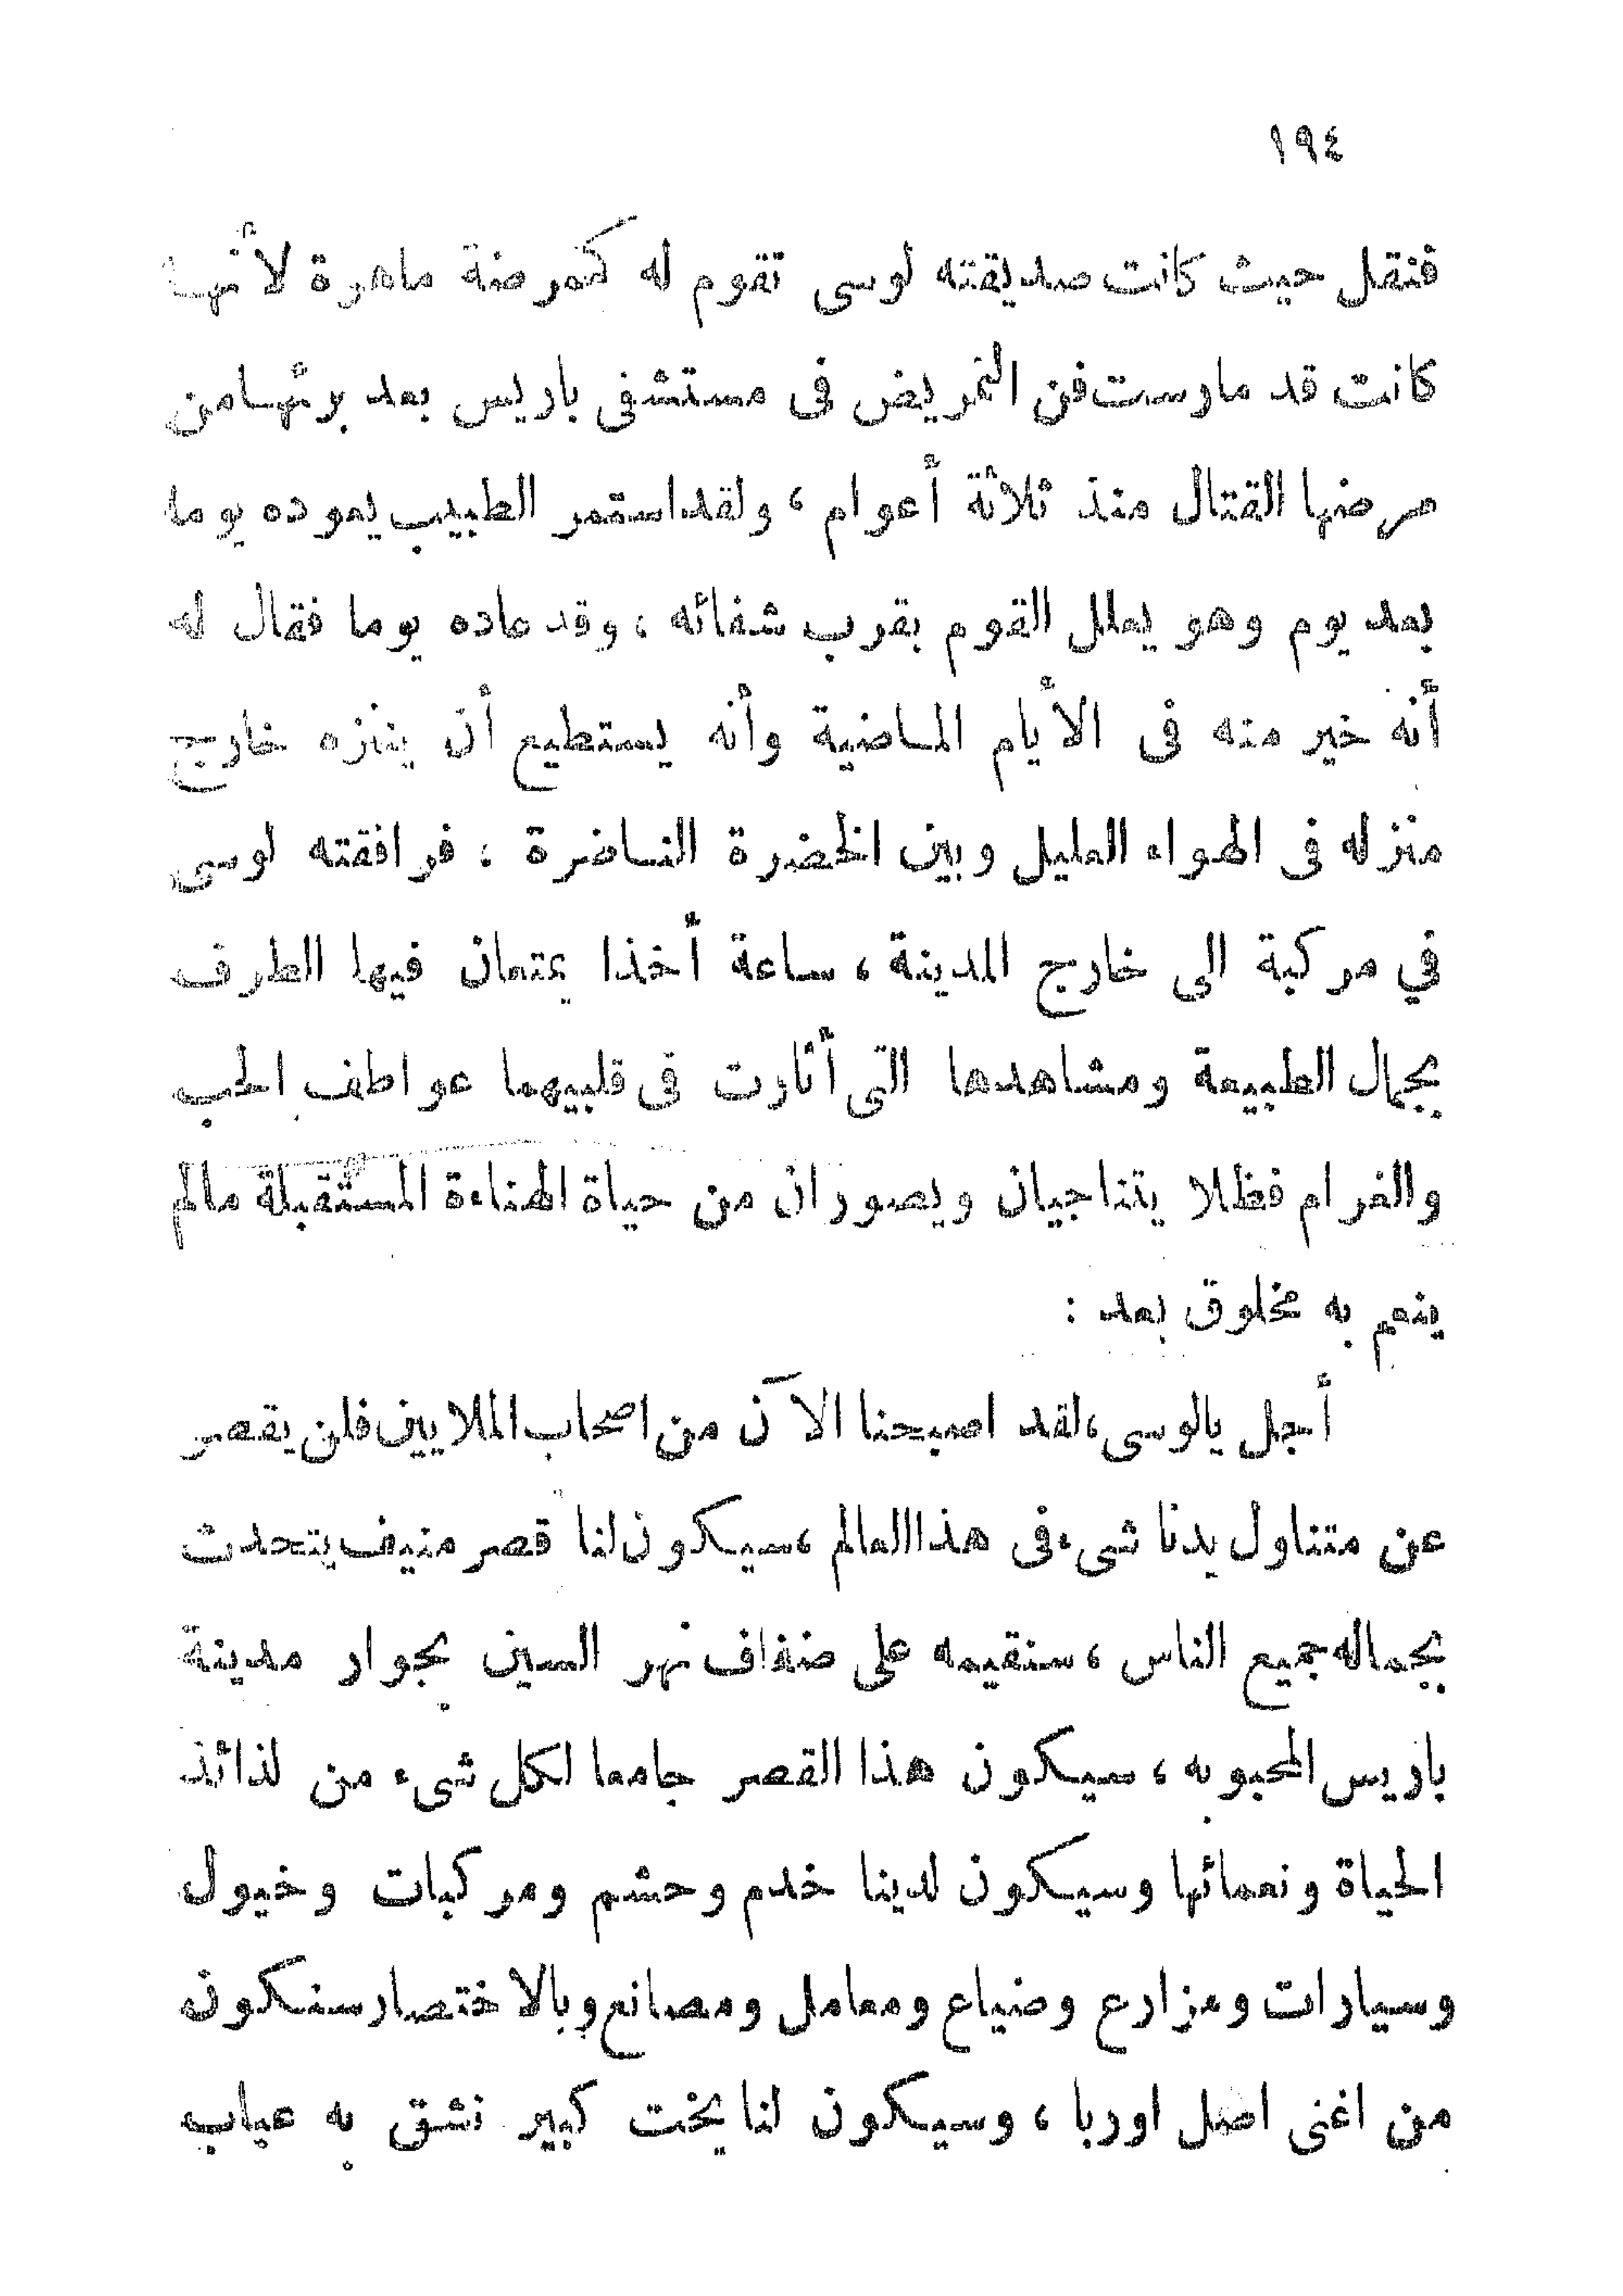 ١٩٤
فنقل حيث كانت صديقته لوسى تقوم له كممرضة ماهرة لأنها
كانت قد مارست فن التمريض فى مستشفى باريس بعد برئها من
مرضها القتال منذ ثلاثة أعوام ، ولقد استمر الطبيب يعوده يوما
بعد يوم وهو يعلل القوم بقرب شفائه ، وقد عاده يوما فقال له
أنه خير منه فى الأيام الماضية وأنه يستطيع أن يتنزه خارج
منزله فى الهواء العليل وبين الخضرة الناضرة ؛ فرافقته لوسى
في مركبة الى خارج المدينة ، ساعة أخذا يمتعان فيها الطرف
بجمال الطبيعة ومشاهدها التى أثارت فى قلبيهما عواطف الحب
والغرام فظلا يتناجيان ويصوران من حياة الهناءة المستقبلة مالم
ينعم به مخلوق بعد :
أجل يالوسى ، لقد اصبحنا الآن من اصحاب الملايين فلن يقصر
عن متناول يدنا شىء فى هذا العالم ، سيكون لنا قصر منيف يتحدث
بجماله جميع الناس ، سنقيمه على ضفاف نهر السين بجوار مدينة
باريس المحبوبه ، سيكون هذا القصر جامعا لكل شىء من لذائذ
الحياة ونعمائها وسيكون لدينا خدم وحشم ومركبات وخيول
وسيارات ومزارع وضياع ومعامل ومصانع وبالاختصار سنكون
من اغنى اهل اوربا ، وسيكون لنا يخت كبير نشق به عباب